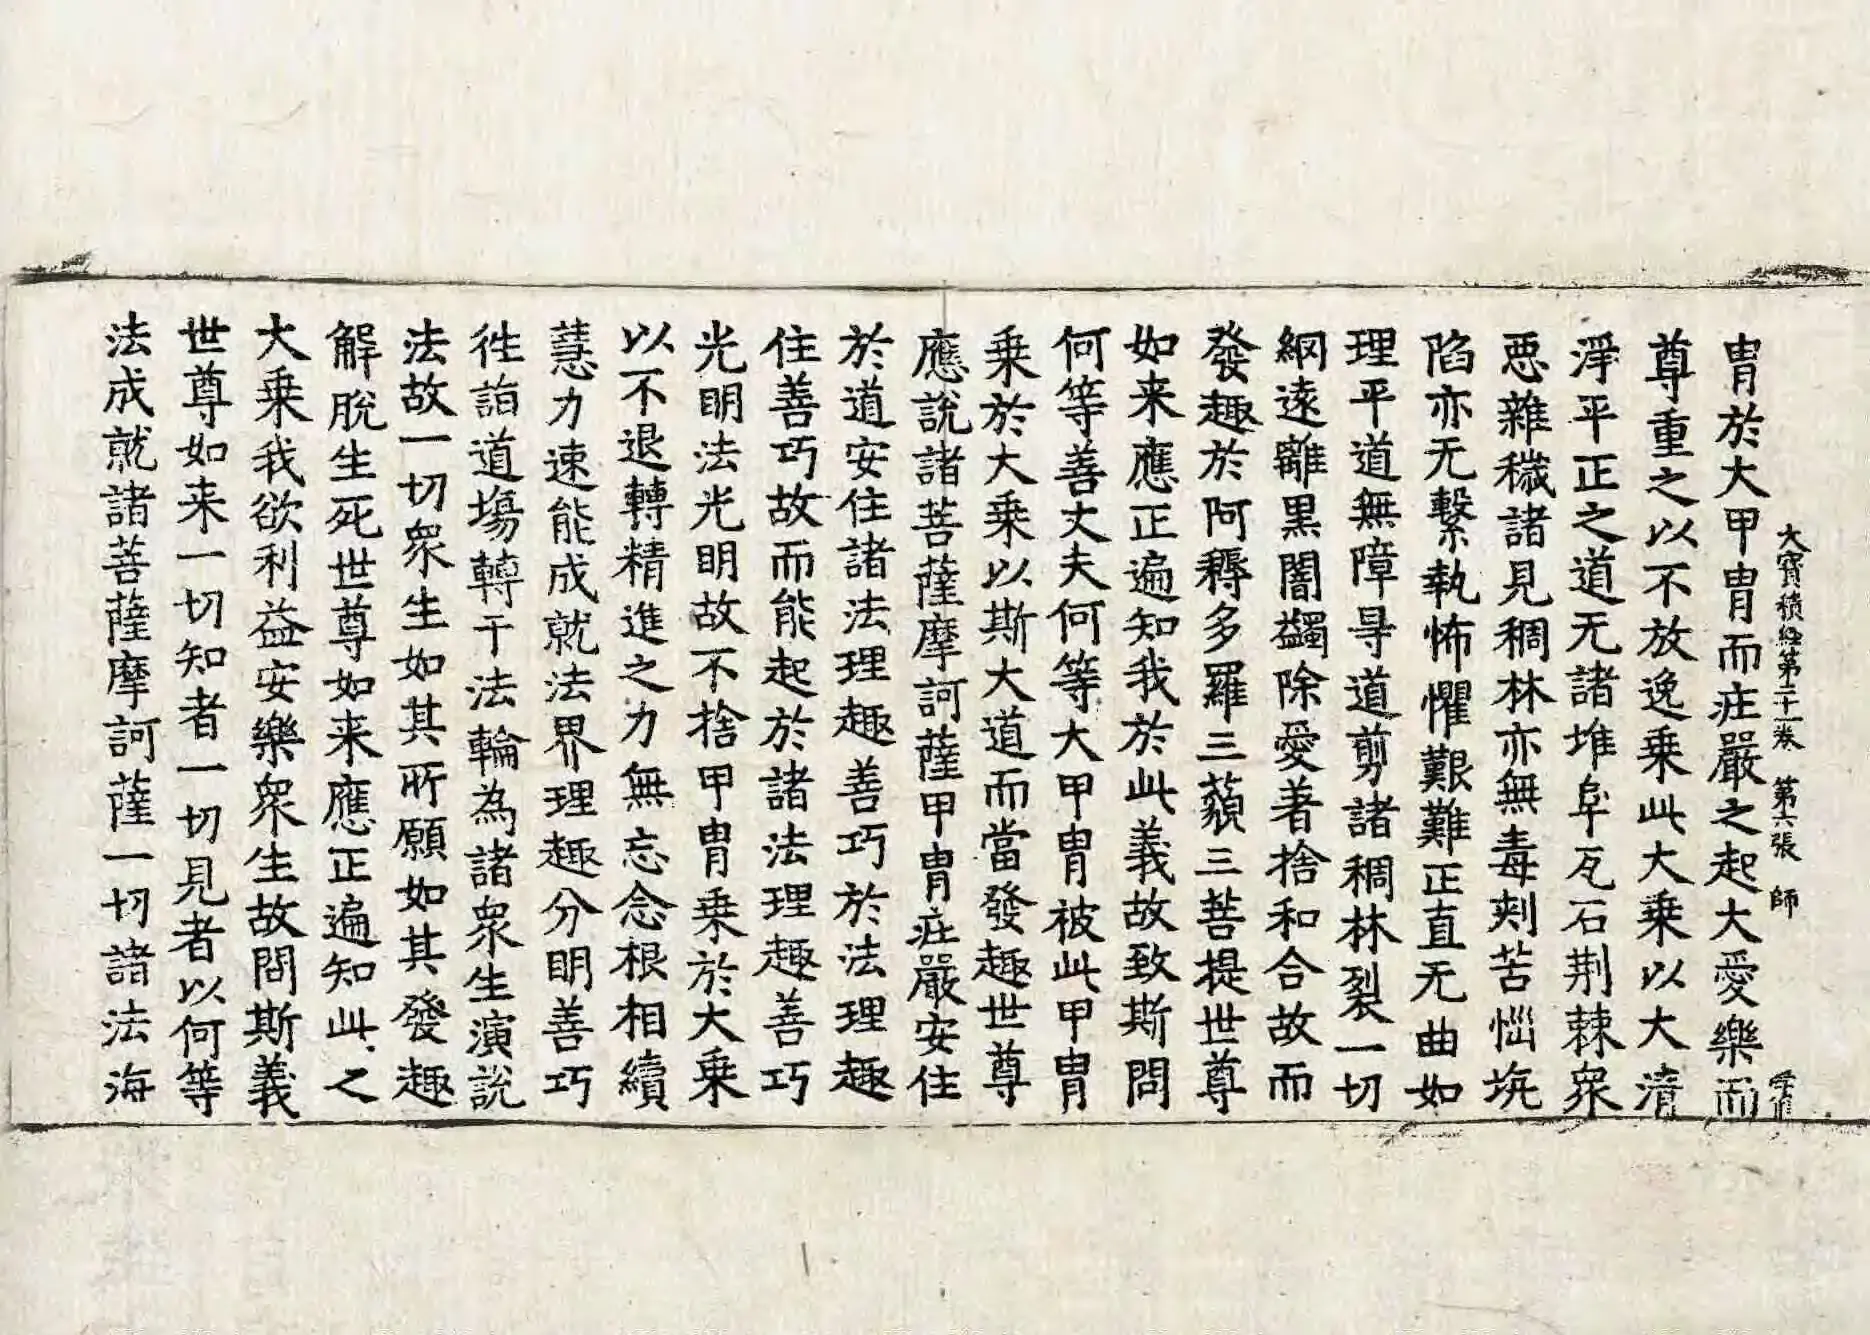 大寶積經第二十一卷　第六張　師
胄於大甲胄而庄嚴之起大愛樂而
尊重之以不放逸乗此大乗以大清
淨平正之道无諸堆阜瓦石荆棘衆
惡雜穢諸見稠林亦無毒刺苦惱坑
陷亦无繫執怖懼艱難正直无曲如
理平道無障㝵道剪諸稠林裂一切
網遠離黒闇蠲除愛著捨和合故而
發趣於阿耨多羅三藐三菩提世尊
如来應正遍知我於此義故致斯問
何等善丈夫何等大甲胄被此甲胄
乗於大乗以斯大道而當發趣世尊
應說諸菩薩摩訶薩甲胄庄嚴安住
於道安住諸法理趣善巧於法理趣
住善巧故而能起於諸法理趣善巧
光明法光明故不捨甲胄乗於大乗
以不退轉精進之力無忘念根相續
慧力速能成就法界理趣分明善巧
徃詣道場轉于法輪為諸衆生演說
法故一切衆生如其所願如其發趣
解脫生死世尊如来應正遍知此之
大乗我欲利益安樂衆生故問斯義
世尊如来一切知者一切見者以何等
法成就諸菩薩摩訶薩一切諸法海